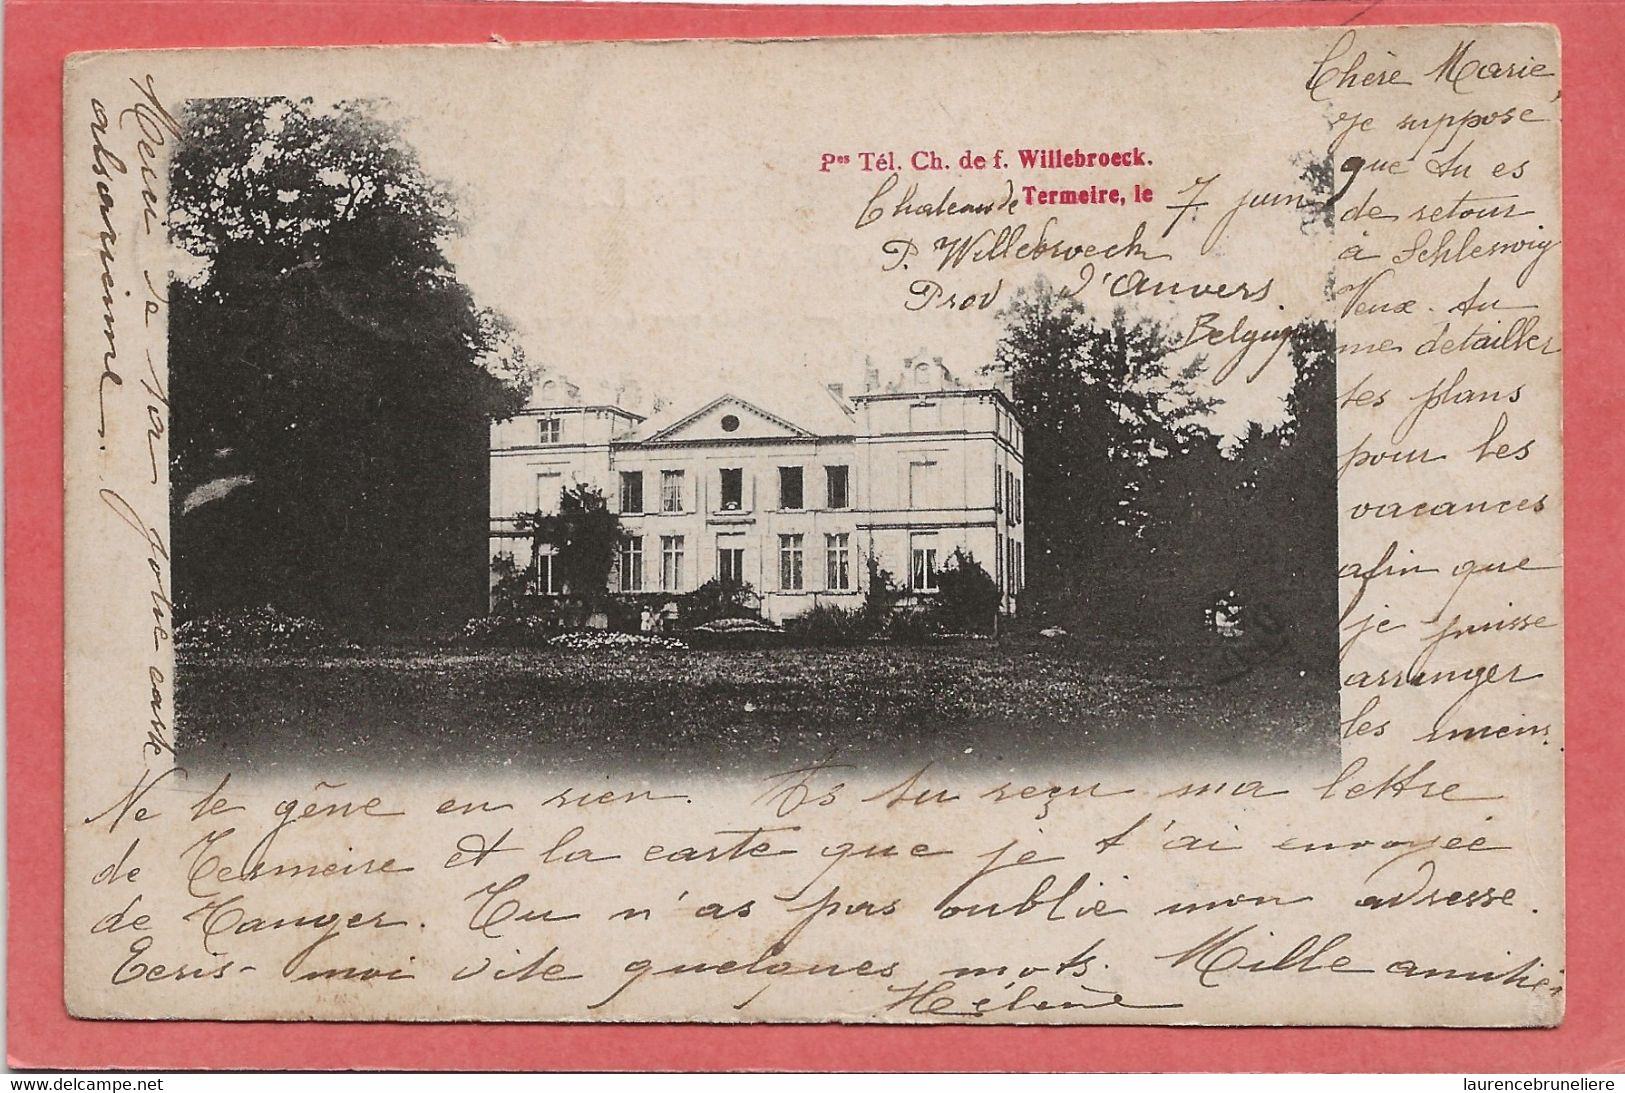 Pes Tél. Ch. de f. Willebroeck.
Chateau de Termeire, le 7 juin
P. Willebroeck
Prov d'Anvers
Belgique
Chère Marie,
je suppose
que tu es
de retour
à Schleswig
Veux-tu
me detailler
tes plans
pour les
vacances
afin que
je puisse
arranger
les miens.
Ne te gêne en rien. As tu reçu ma lettre
de Termeire et la carte que je t'ai envoyée
de Tanger. Tu n'as pas oublié mon adresse.
Ecris-moi vite quelques mots. Mille amitiés
Hélène
Merci de ta jolie carte
alsacienne.
delcampe.net
laurencebruneliere